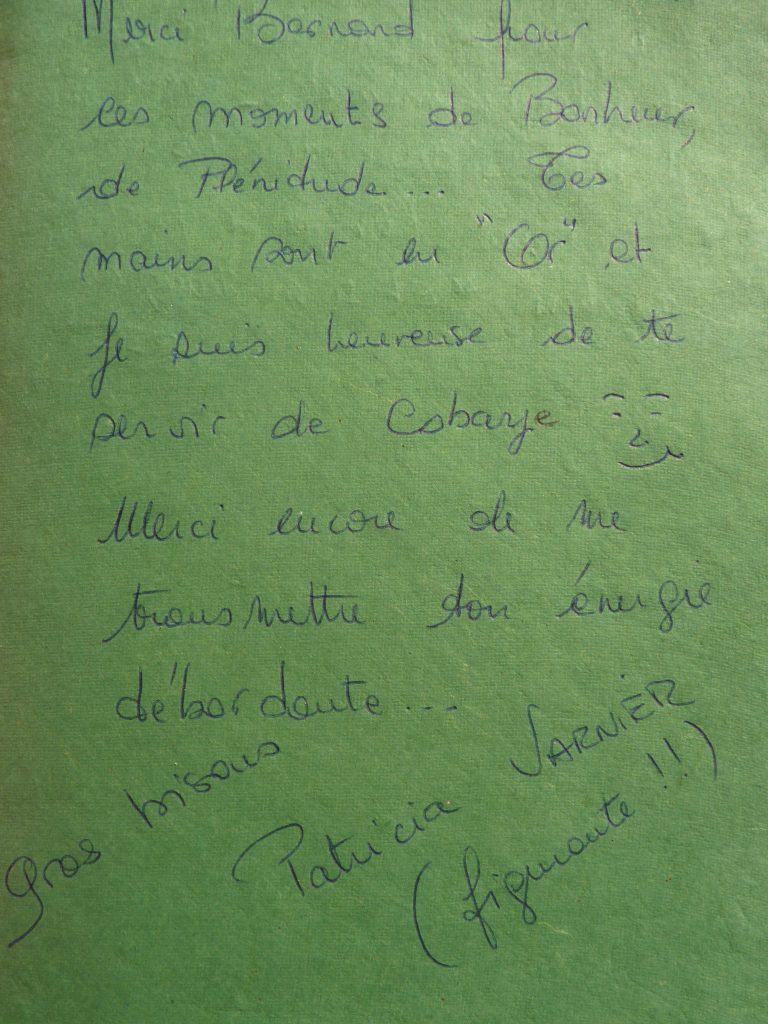 Merci Bernard pour
ces moments de Bonheur,
de Plénidude... Tes
mains sont en "Or" et
Je suis heureuse de te
servir de Cobaye
Merci encore de me
transmettre ton énergie
débordante...
Gros bisous
Patricia JARNIER
(figurante !!)